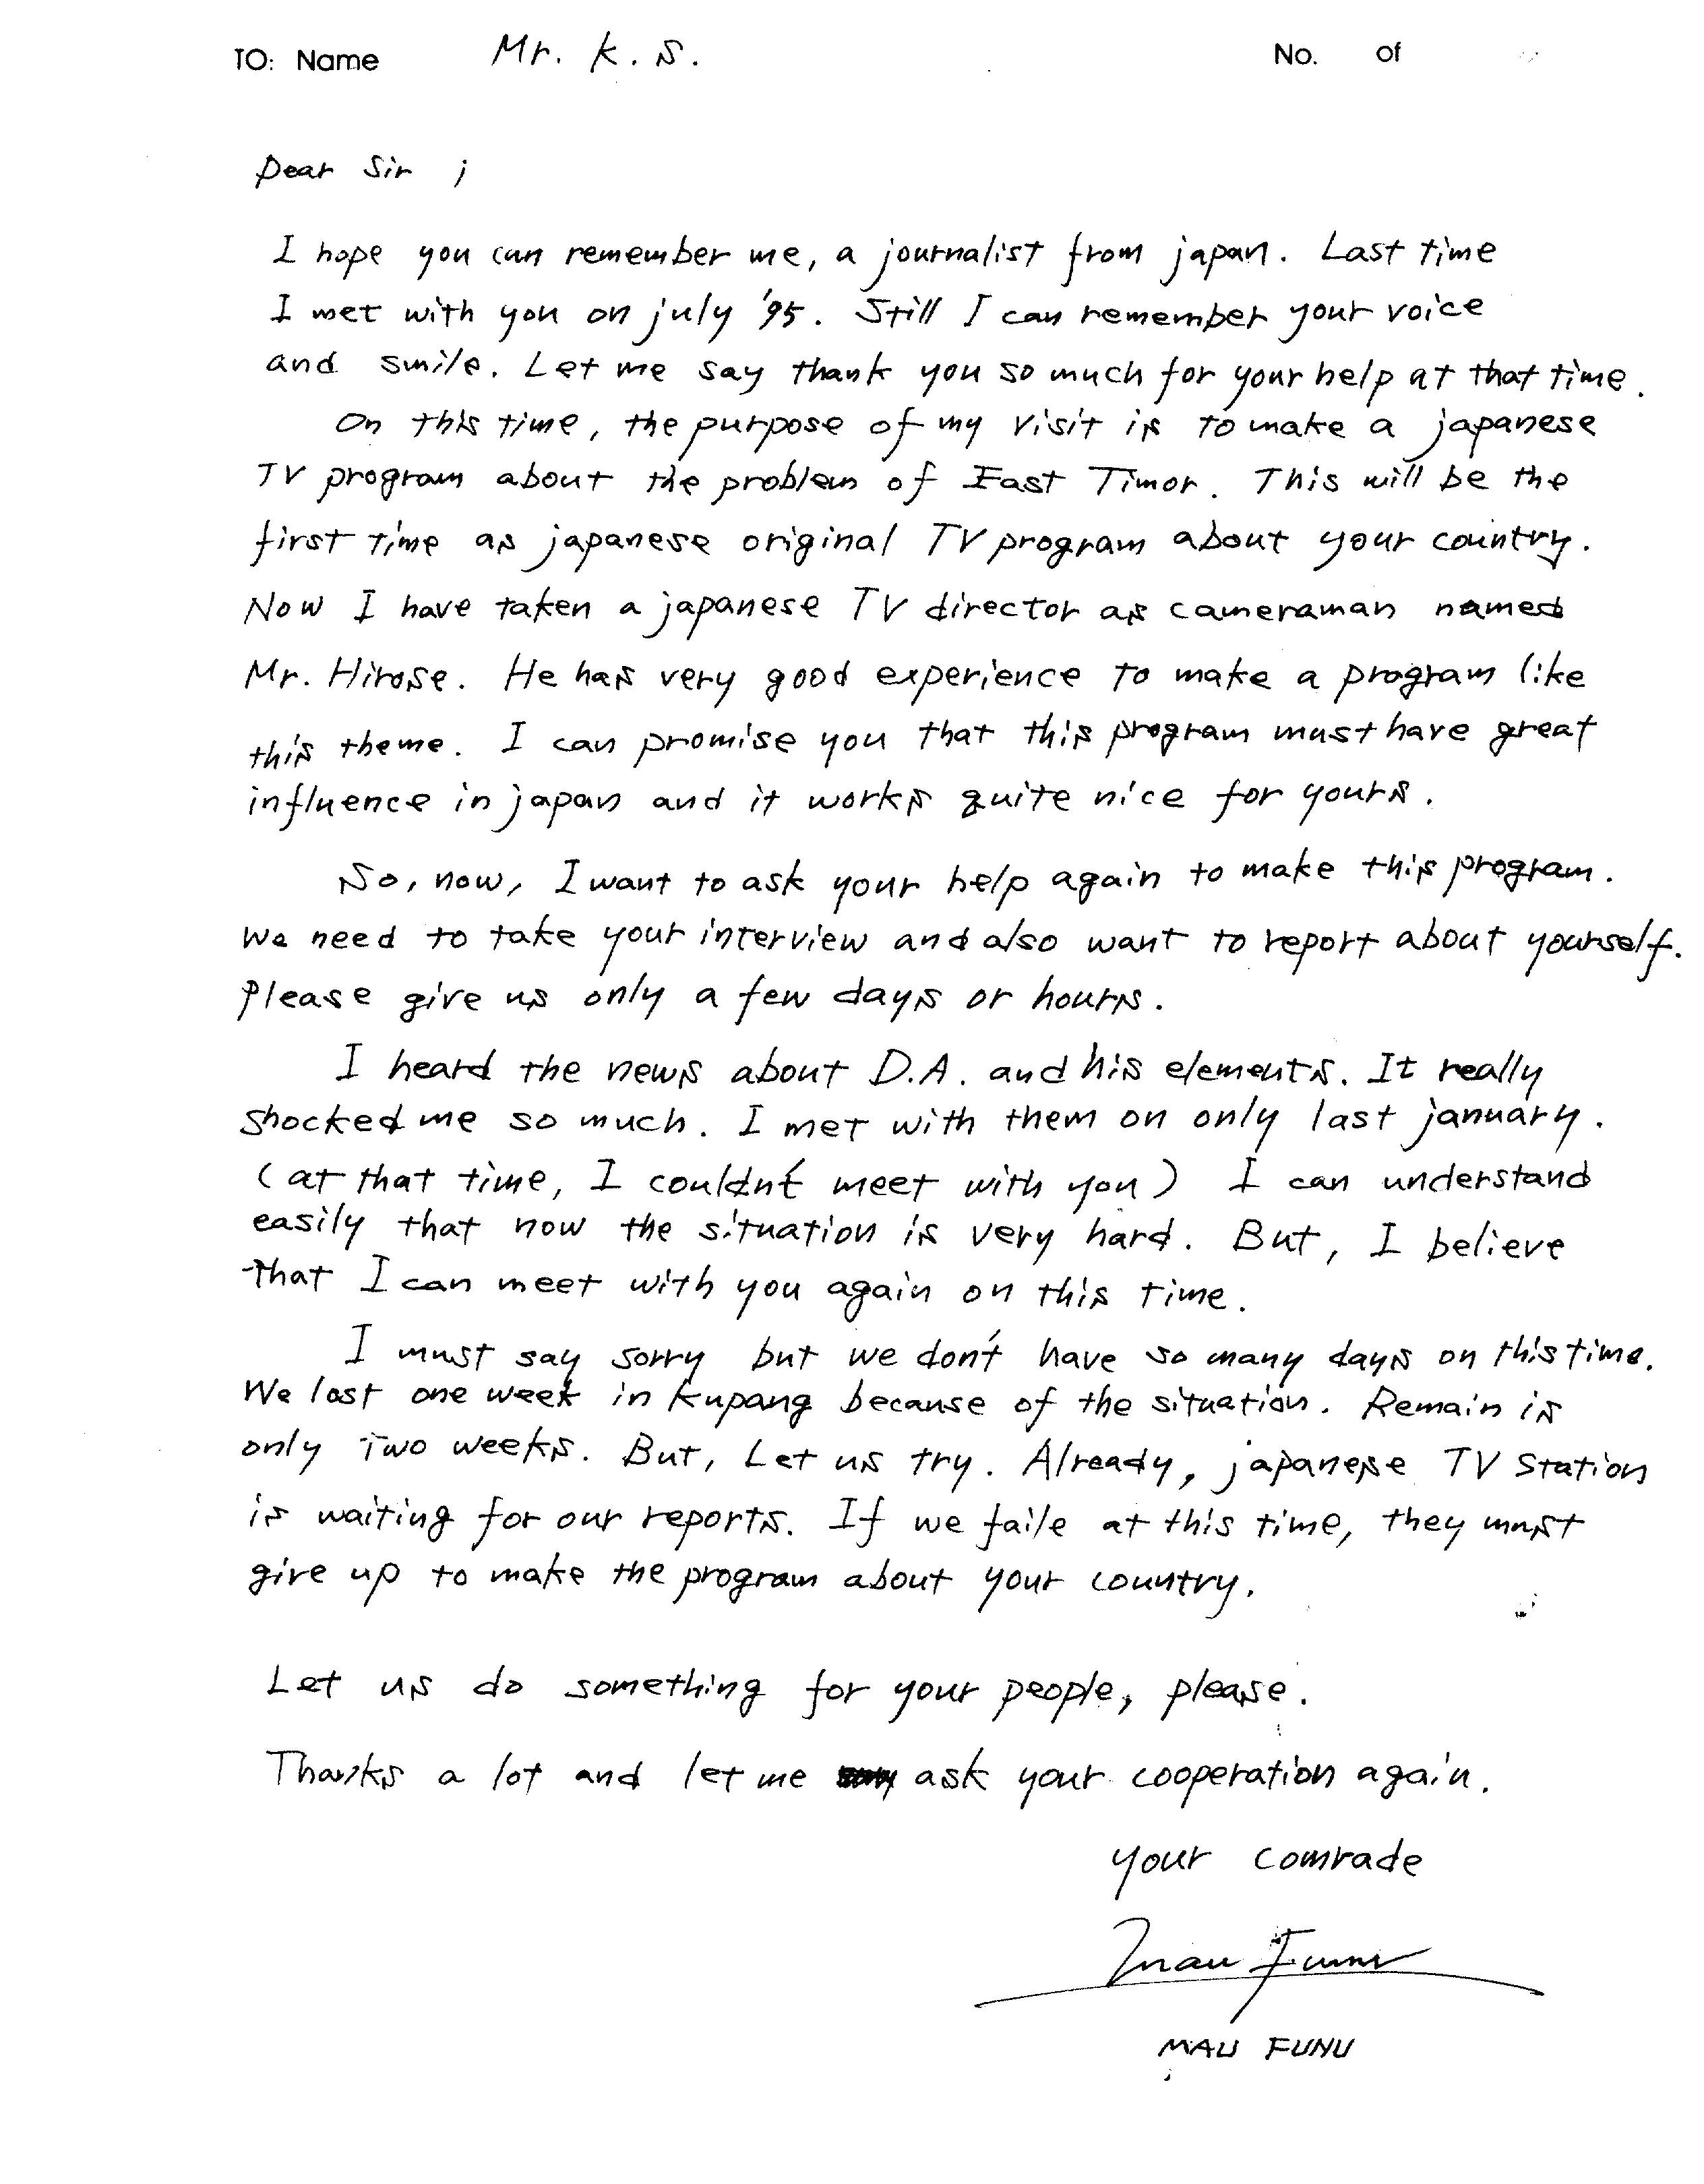 TO: Name Mr. K. S. No. of
Dear Sir ;
I hope you can remember me, a journalist from japan. Last time
I met with you on july '95. Still I can remember your voice
and smile. Let me say thank you so much for your help at that time.
On this time, the purpose of my visit is to make a japanese
TV program about the problem of East Timor. This will be the
first time as japanese original TV program about your country.
Now I have taken a japanese TV director as cameraman named
Mr. Hirose. He has very good experience to make a program like
this theme. I can promise you that this program must have great
influence in japan and it works quite nice for yours.
So, now, I want to ask your help again to make this program.
We need to take your interview and also want to report about yourself.
Please give us only a few days or hours.
I heard the news about D.A. and his elements. It really
shocked me so much. I met with them on only last january.
(at that time, I couldn't meet with you) I can understand
easily that now the situation is very hard. But, I believe
that I can meet with you again on this time.
I must say sorry but we don't have so many days on this time.
We lost one week in Kupang because of the situation. Remain is
only two weeks. But, Let us try. Already, japanese TV station
is waiting for our reports. If we faile at this time, they must
give up to make the program about your country.
Let us do something for your people, please.
Thanks a lot and let me ask your cooperation again.
your comrade
Mau Funu
MAU FUNU